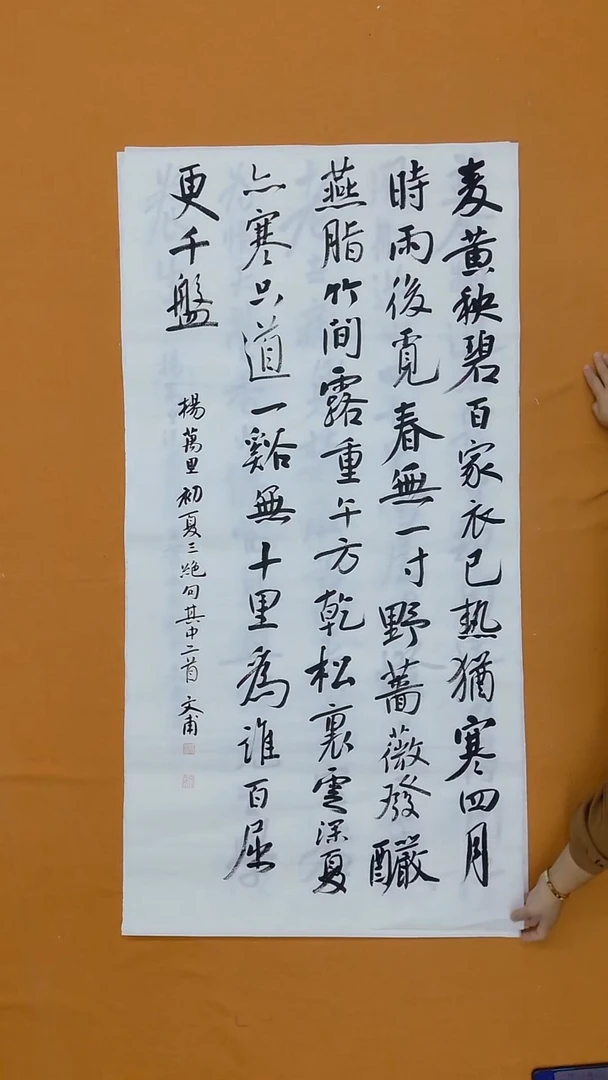 麦黄秧碧百家衣已熱猶寒四月
時雨後覓春無一寸野薔薇發釅
燕脂竹間露重午方乾松裏雲深夏
亦寒只道一谿無十里為誰百屈
更千盤
楊萬里初夏三絕句其中二首 文甫